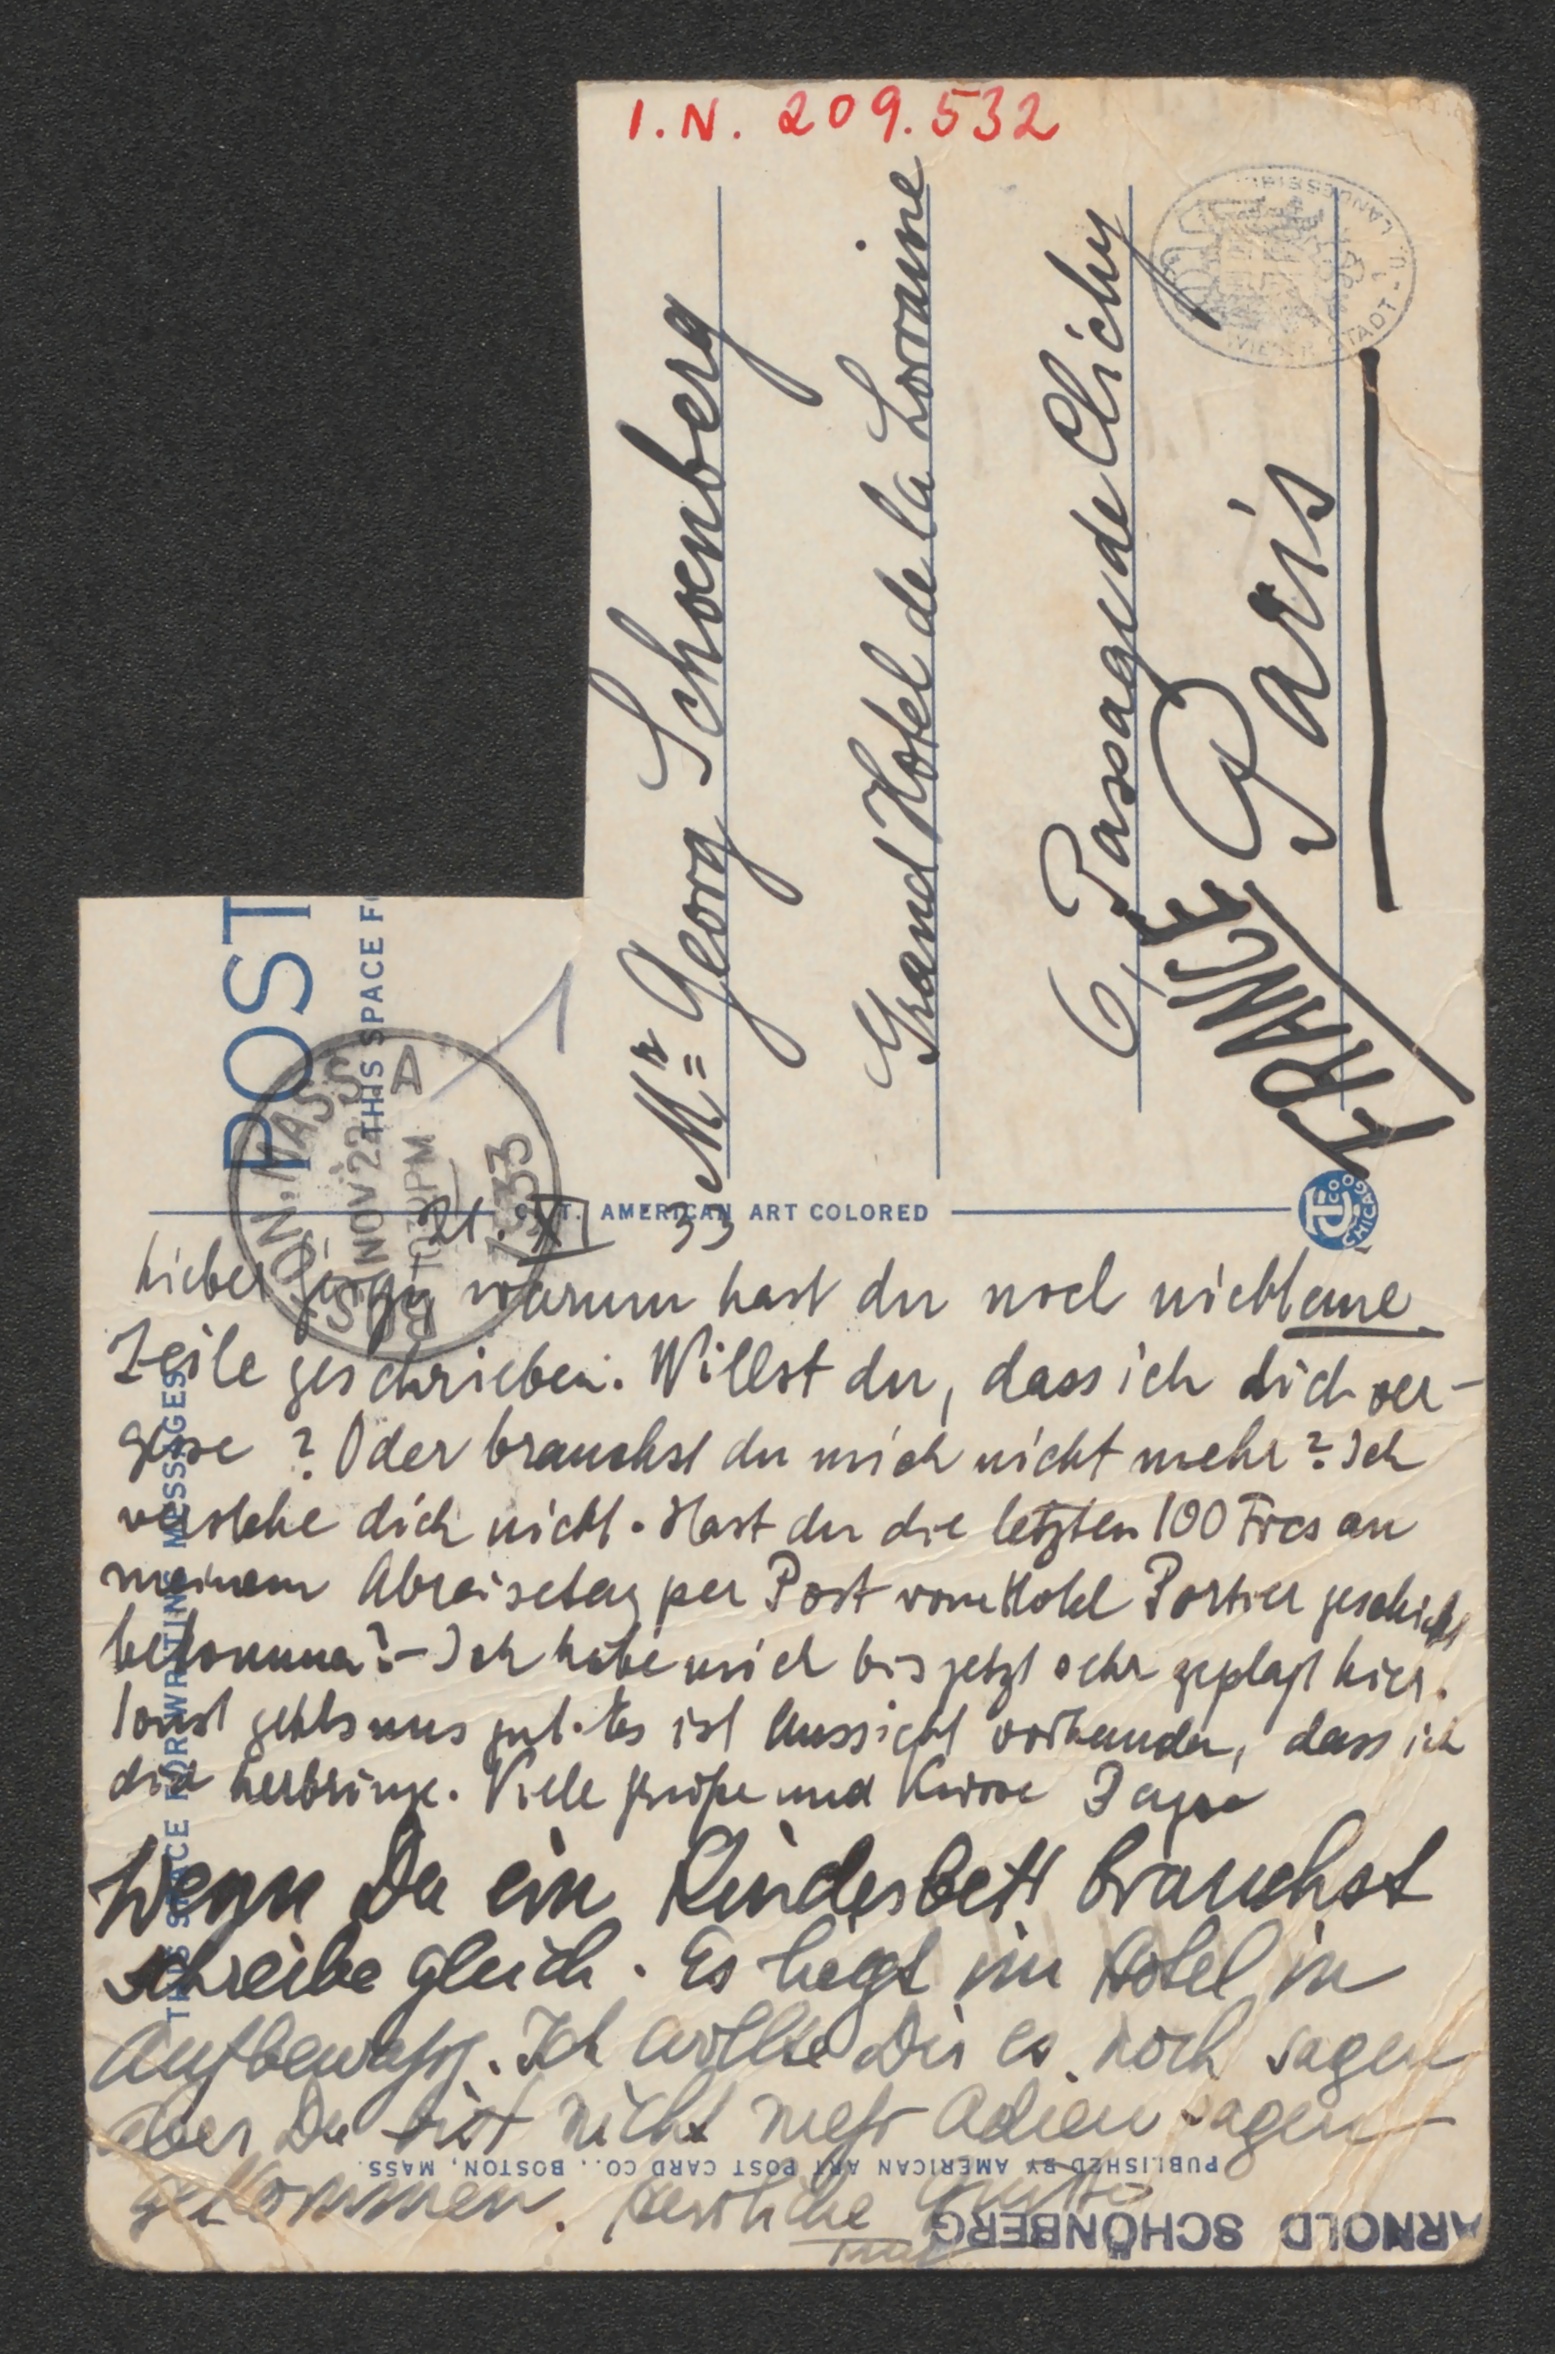 I.N. 209.532
Mr Georg Schoenberg
Grand Hotel de la Lorraine
6, Passage de Clichy
Paris
FRANCE
WIENER STADT- U. LANDESBIBL
POST
THIS SPACE FO
BOSTON, MASS. A
NOV 22
1030PM
1933
C. T. AMERICAN ART COLORED
CHICAGO
THIS SPACE FOR WRITING MESSAGES
21. XI 33
Lieber Görgi warum hast du noch nicht eine
Zeile geschrieben. Willst du, dass ich dich ver-
gesse? Oder brauchst du mich nicht mehr? Ich
verstehe dich nicht. Hast du die letzten 100 Frcs an
meinem Abreisetag per Post vom Hotel Portier geschickt
bekommen? – Ich habe mich bis jetzt sehr geplagt hier.
Sonst gehts uns gut. Es ist Aussicht vorhanden, dass ich
dich herbringe. Viele Grüße und Küsse Papa
Wenn Du ein Kinderbett brauchst
schreibe gleich. Es liegt im Hotel in
Aufbewahrg. Ich wollte Dir es noch sagen
aber Du bist nicht mehr Adieu sagen
gekommen. Herzliche Grüße
PUBLISHED BY AMERICAN ART POST CARD CO., BOSTON, MASS.
ARNOLD SCHÖNBERG